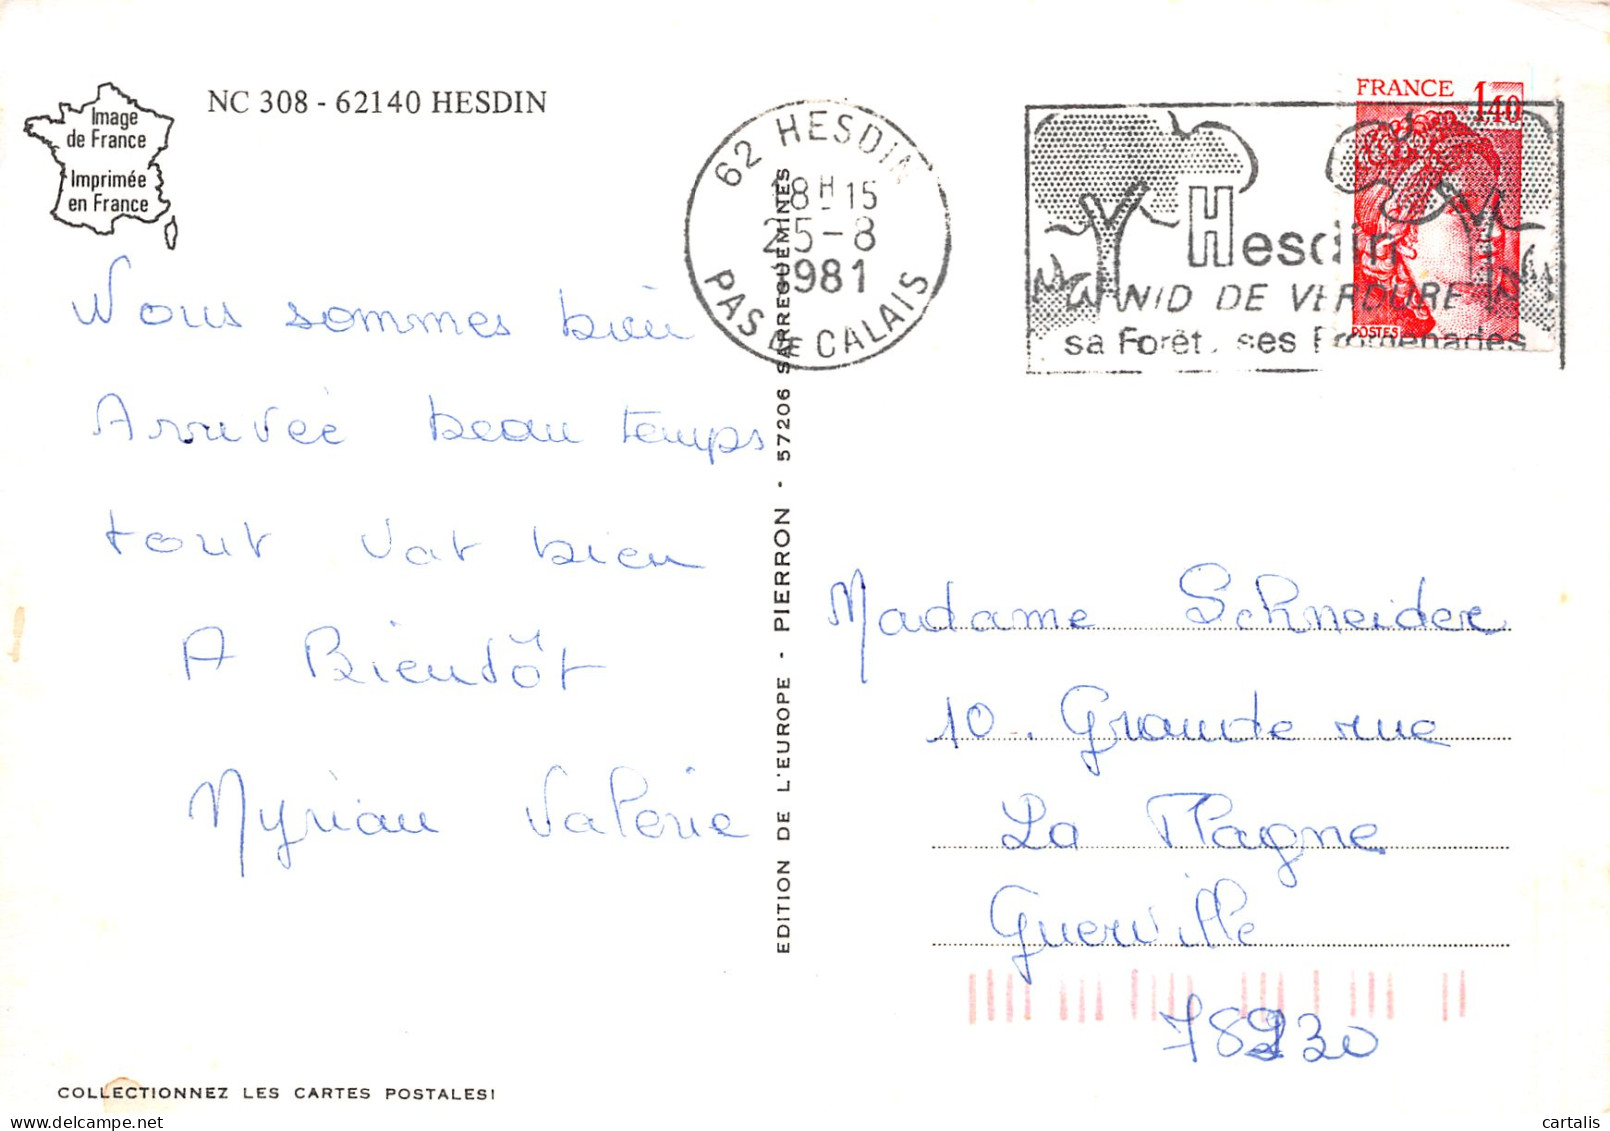 Image
de France
Imprimée
en France
NC 308 - 62140 HESDIN
62 HESDIN
18H15
25-8
1981
PAS DE CALAIS
Hesdin
NID DE VERDURE
sa Forêt, ses Promenades
FRANCE 1,40
POSTES
Nous sommes bien
Arrivée beau temps
tout vat bien
A Bientôt
Myriam Valérie
EDITION DE L'EUROPE - PIERRON - 57206 SARREGUEMINES
Madame Schneider
10. Grande rue
La Plagne
Guerville
78930
COLLECTIONNEZ LES CARTES POSTALES!
cartalis